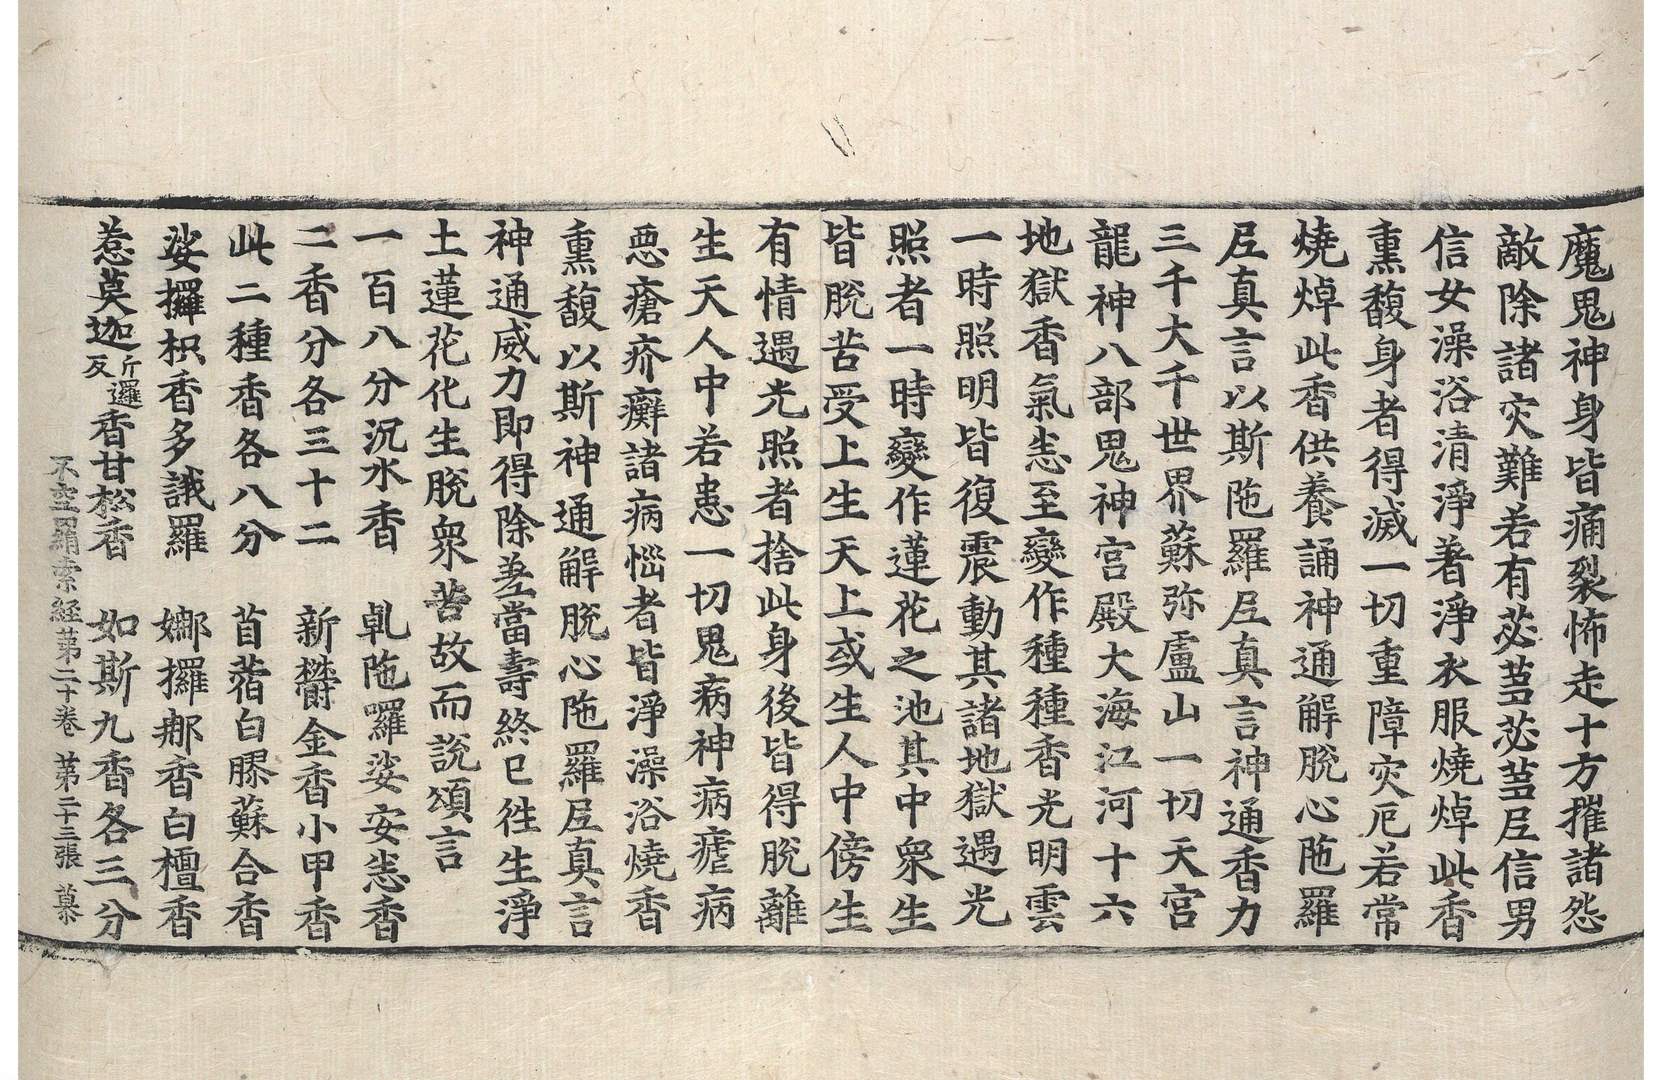 魔鬼神身皆痛裂怖走十方摧諸怨
敵除諸灾難若有苾蒭苾蒭尼信男
信女澡浴清淨著淨衣服燒焯此香
熏馥身者得滅一切重障灾厄若常
燒焯此香供養誦神通解脫心陁羅
尼真言以斯陁羅尼真言神通香力
三千大千世界蘇弥盧山一切天宮
龍神八部鬼神宮殿大海江河十六
地獄香氣悉至變作種種香光明雲
一時照明皆復震動其諸地獄遇光
照者一時變作蓮花之池其中眾生
皆脫苦受上生天上或生人中傍生
有情遇光照者捨此身後皆得脫離
生天人中若患一切鬼病神病瘧病
惡瘡疥癬諸病惱者皆淨澡浴燒香
熏馥以斯神通解脫心陁羅尼真言
神通威力即得除差當壽終已徃生淨
土蓮花化生脫眾苦故而說頌言
一百八分沉水香　乹陁囉娑安悉香
二香分各三十二　新欎金香小甲香
此二種香各八分　苜蓿白膠蘇合香
娑攞枳香多誐羅　娜攞那香白檀香
惹莫迦斤邏反香甘松香　如斯九香各三分
不空羂索經苐二十卷　苐二十三張　慕